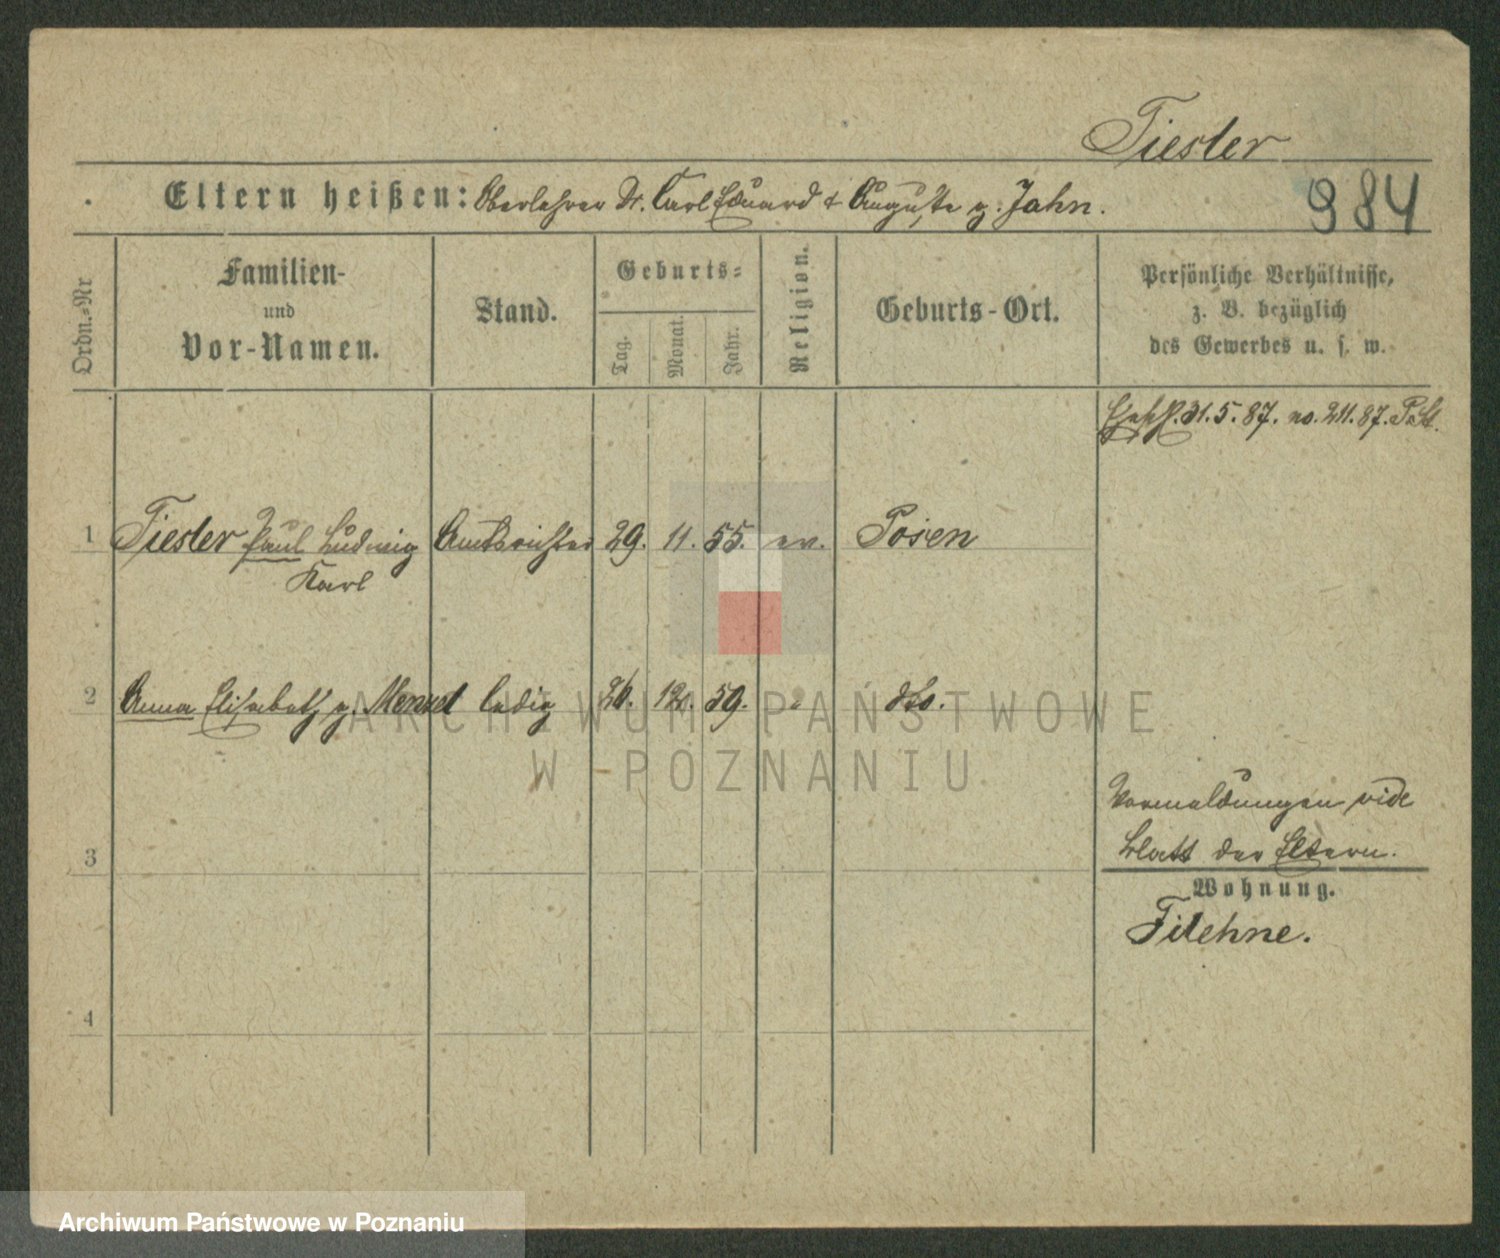 Tiesler
Eltern heißen: Oberlehrer Dr. Carl Eduard & Auguste g. Jahn.
984
Ordn.=Nr
Familien-
und
Vor-Namen.
Stand.
Geburts=
Tag.
Monat.
Jahr.
Religion.
Geburts-Ort.
Persönliche Verhältnisse,
z. B. bezüglich
des Gewerbes u. s. w.
31.5.87. no. 211.87. P. St.
1 Tiesler Paul Ludwig Amtsrichter 29. 11. 55. ev. Posen
Karl
2 Anna Elisabeth g. Menzel ledig 26. 12. 59. " dto.
ARCHIWUM PAŃSTWOWE
W POZNANIU
Vormeldungen vide
Blatt der Eltern.
3
Wohnung.
Filehne.
4
Archiwum Państwowe w Poznaniu